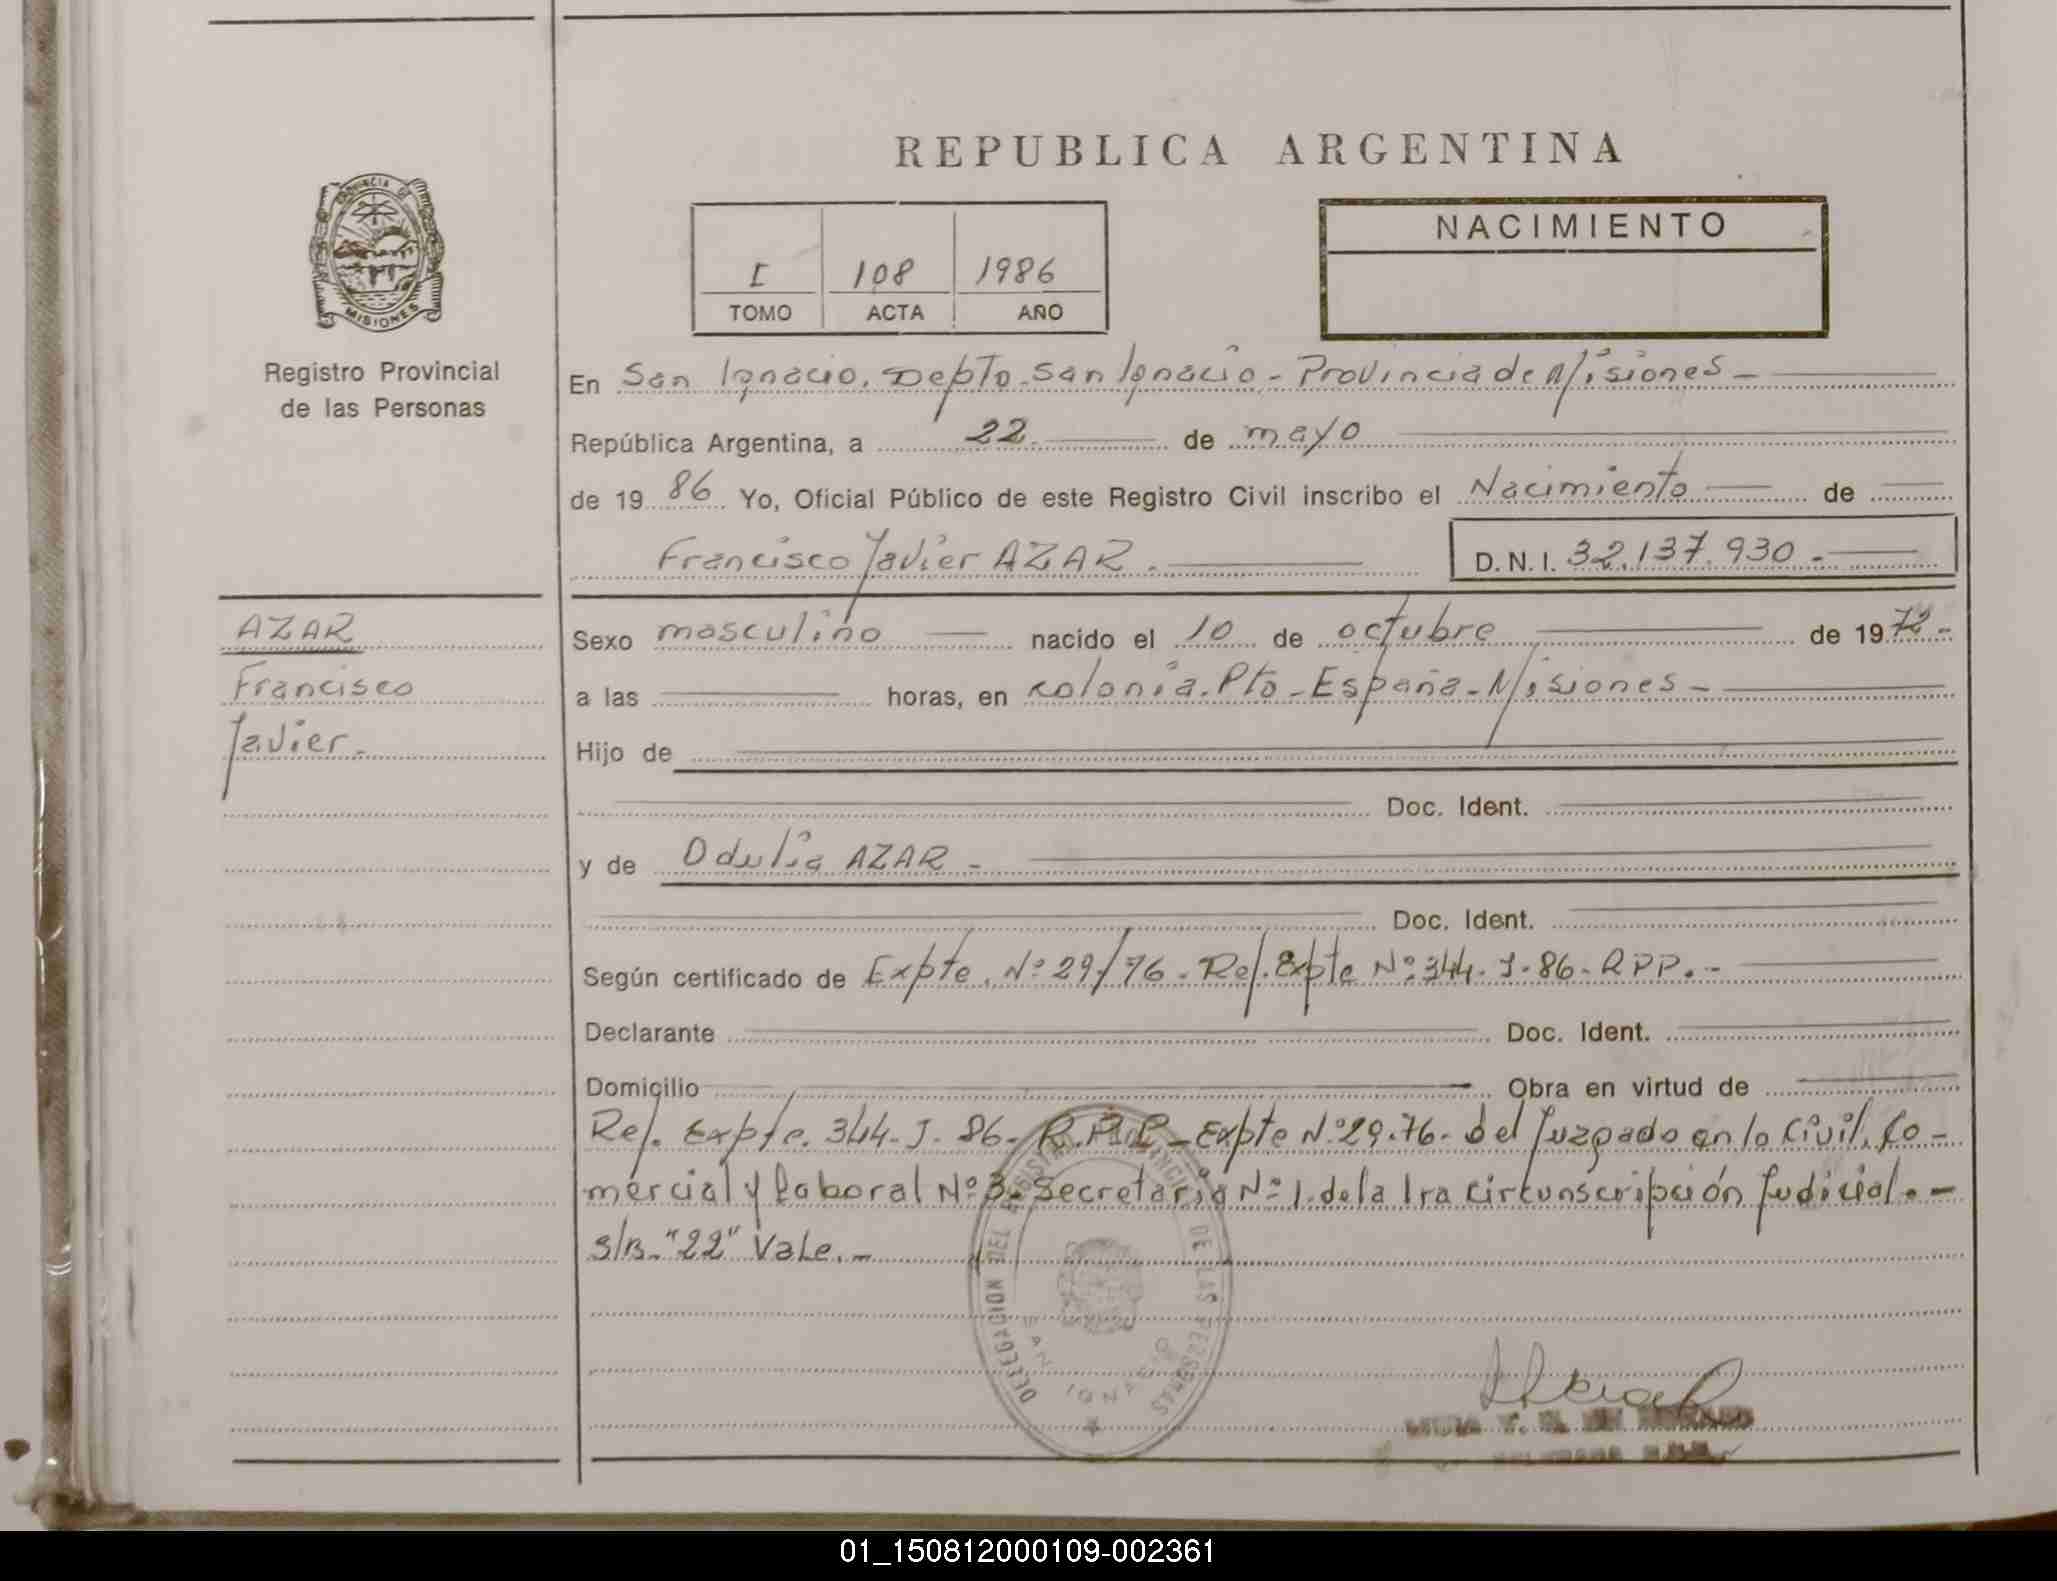 REPUBLICA ARGENTINA
PROVINCIA DE
MISIONES
Registro Provincial
de las Personas
I 108 1986
TOMO ACTA AÑO
NACIMIENTO
En San Ignacio. Depto. San Ignacio - Provincia de Misiones -
República Argentina, a 22. de mayo
de 19 86 Yo, Oficial Público de este Registro Civil inscribo el Nacimiento de
Francisco Javier AZAR. D.N.I. 32.137.930.-
AZAR
Francisco
Javier.-
Sexo masculino nacido el 10 de octubre de 19 72-
a las horas, en colonia. Pto - España - Misiones -
Hijo de
Doc. Ident.
y de Odulia AZAR -
Doc. Ident.
Según certificado de Expte. Nº 29/76 - Ref. Expte Nº 344. J-86- RPP.-
Declarante Doc. Ident.
Domicilio Obra en virtud de
Ref. Expte. 344. J. 86- R.P.P - Expte Nº 29.76- del Juzgado en lo Civil, Co-
mercial y Laboral Nº 3. Secretaria Nº 1. de la 1ra Circunscripción Judicial.-
S/B. "22" Vale.-
DELEGACION DEL REGISTRO PROVINCIAL DE LAS PERSONAS
SAN IGNACIO
01_150812000109-002361